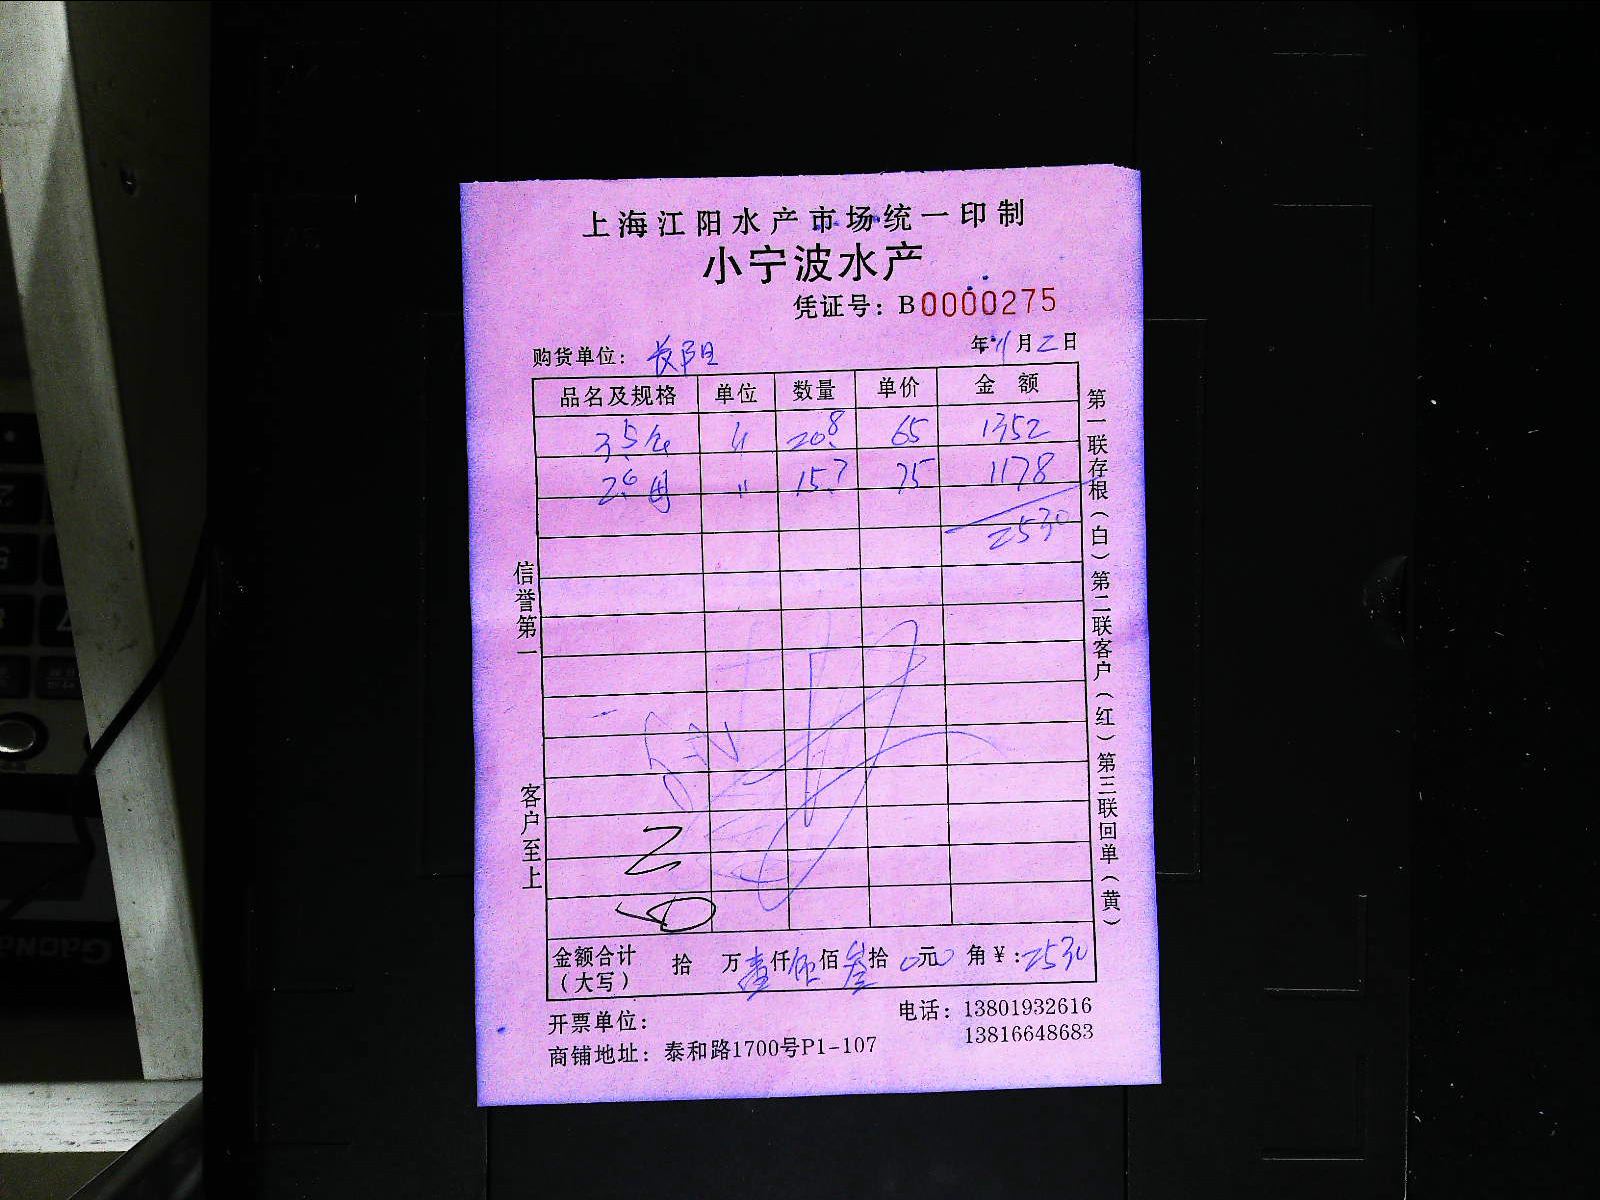 上海江阳水产市场统一印制
小宁波水产
凭证号：B0000275
购货单位：长阳
年11月2日
品名及规格 单位 数量 单价 金额
3.5 20.8 65 1352
2.6母 〃 15.7 75 1178
2530
信誉第一
客户至上
第一联存根（白）第二联客户（红）第三联回单（黄）
金额合计（大写） 拾 万 仟伍佰叁拾0元0角￥：2530
开票单位：
电话：13801932616
13816648683
商铺地址：泰和路1700号P1-107